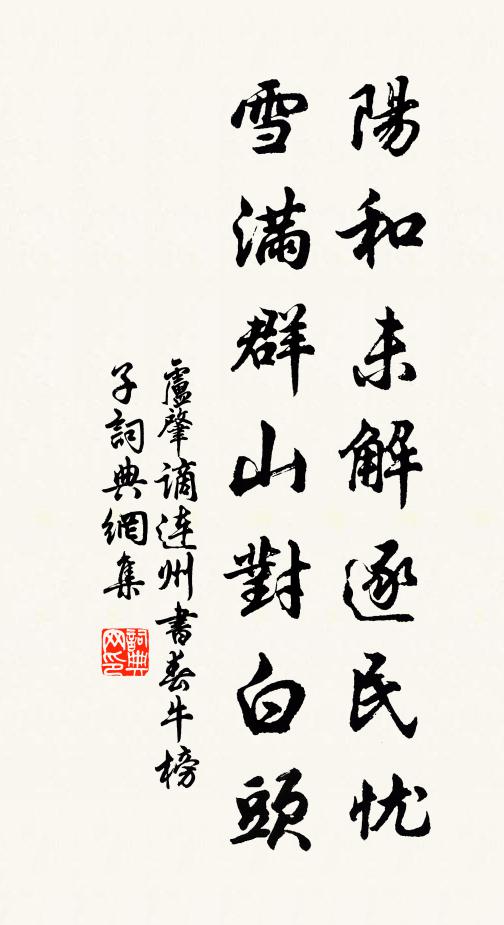 陽和未解逐民忧
雪滿群山對白頭
盧肇謫連州書春牛榜
子詞典網集
詞典网印